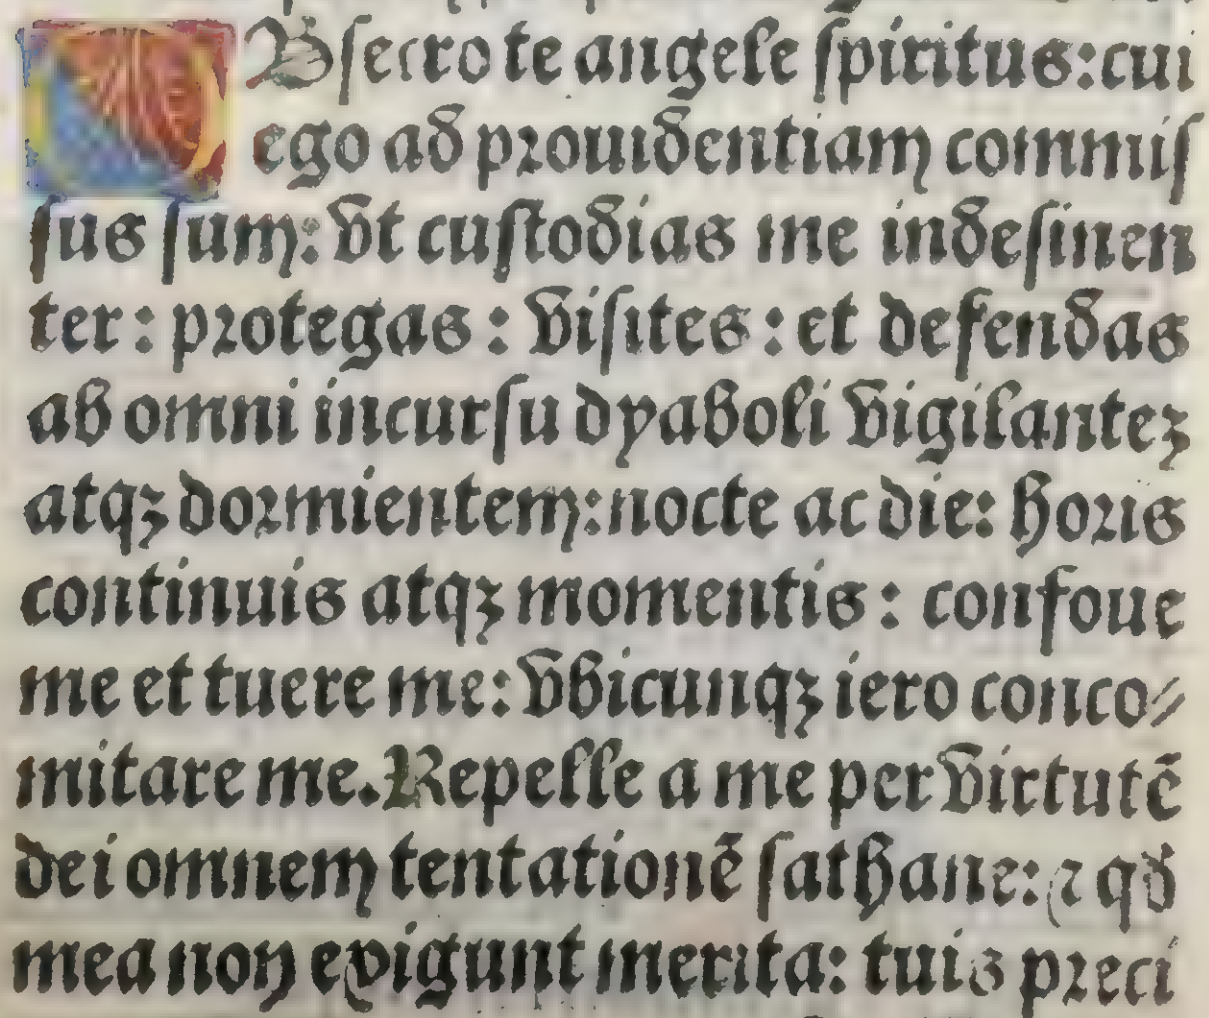 OBsecro te angele spiritus: cui
ego ad prouidentiam commis
sus sum: vt custodias me indesinen
ter: protegas: visites: et defendas
ab omni incursu dyaboli vigilantez
atqꝫ dormientem: nocte ac die: horis
continuis atqꝫ momentis: confoue
me et tuere me: vbicunqꝫ iero conco⸗
mitare me. Repelle a me per virtutē
dei omnem tentationē sathane: ⁊ qđ
mea non exigunt merita: tuis preci